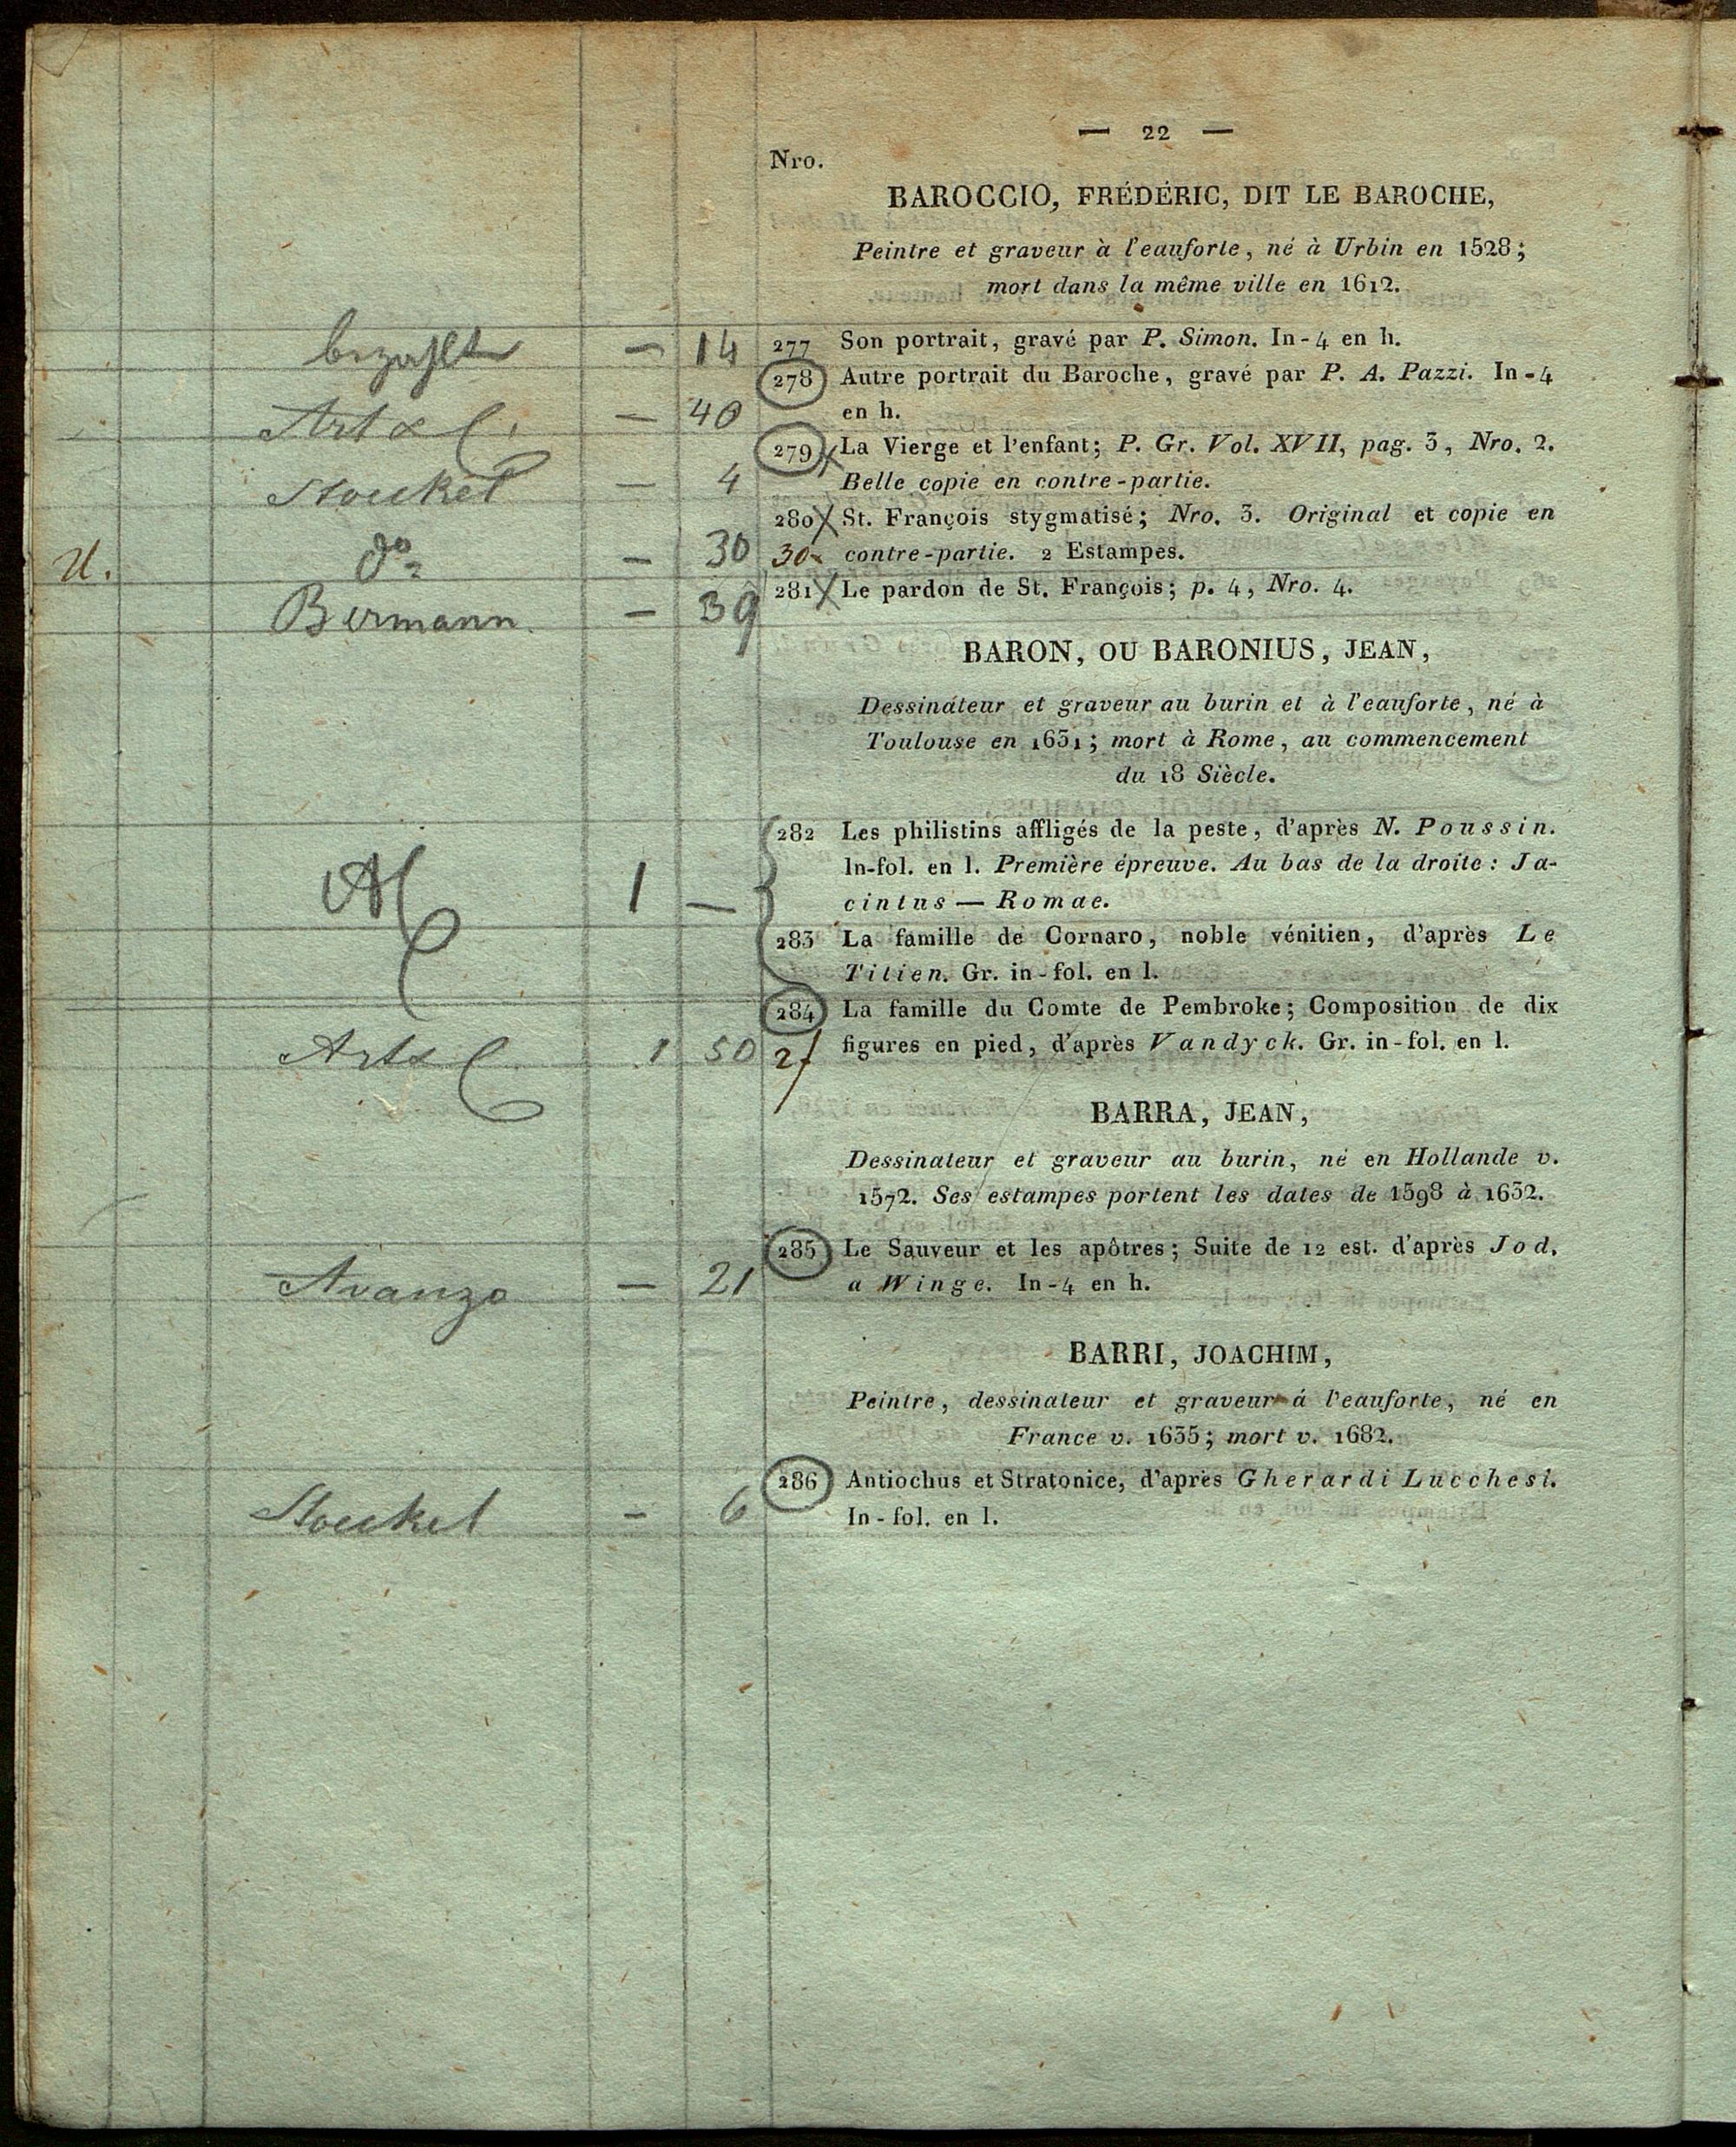 — 22 —
Nro.
BAROCCIO, FRÉDÉRIC, DIT LE BAROCHE,
Peintre et graveur à l'eauforte, né à Urbin en 1528;
mort dans la même ville en 1612.
bezahlt — 14 277 Son portrait, gravé par P. Simon. In-4 en h.
278 Autre portrait du Baroche, gravé par P. A. Pazzi. In-4
Art & C. — 40 en h.
279 La Vierge et l'enfant; P. Gr. Vol. XVII, pag. 3, Nro. 2.
Stoukel — 4 Belle copie en contre-partie.
280 St. François stygmatisé; Nro. 3. Original et copie en
do — 30 30 contre-partie. 2 Estampes.
281 Le pardon de St. François; p. 4, Nro. 4.
Bermann — 39
BARON, OU BARONIUS, JEAN,
Dessinateur et graveur au burin et à l'eauforte, né à
Toulouse en 1631; mort à Rome, au commencement
du 18 Siècle.
282 Les philistins affligés de la peste, d'après N. Poussin.
In-fol. en l. Première épreuve. Au bas de la droite: Ja-
1 — cintus — Romae.
283 La famille de Cornaro, noble vénitien, d'après Le
Titien. Gr. in-fol. en l.
284 La famille du Comte de Pembroke; Composition de dix
Art & C 1 50 2 figures en pied, d'après Vandyck. Gr. in-fol. en l.
BARRA, JEAN,
Dessinateur et graveur au burin, né en Hollande v.
1572. Ses estampes portent les dates de 1598 à 1632.
285 Le Sauveur et les apôtres; Suite de 12 est. d'après Jod.
Avanzo — 21 a Winge. In-4 en h.
BARRI, JOACHIM,
Peintre, dessinateur et graveur à l'eauforte, né en
France v. 1635; mort v. 1682.
286 Antiochus et Stratonice, d'après Gherardi Lucchesi.
Stoukel - 6 In-fol. en l.